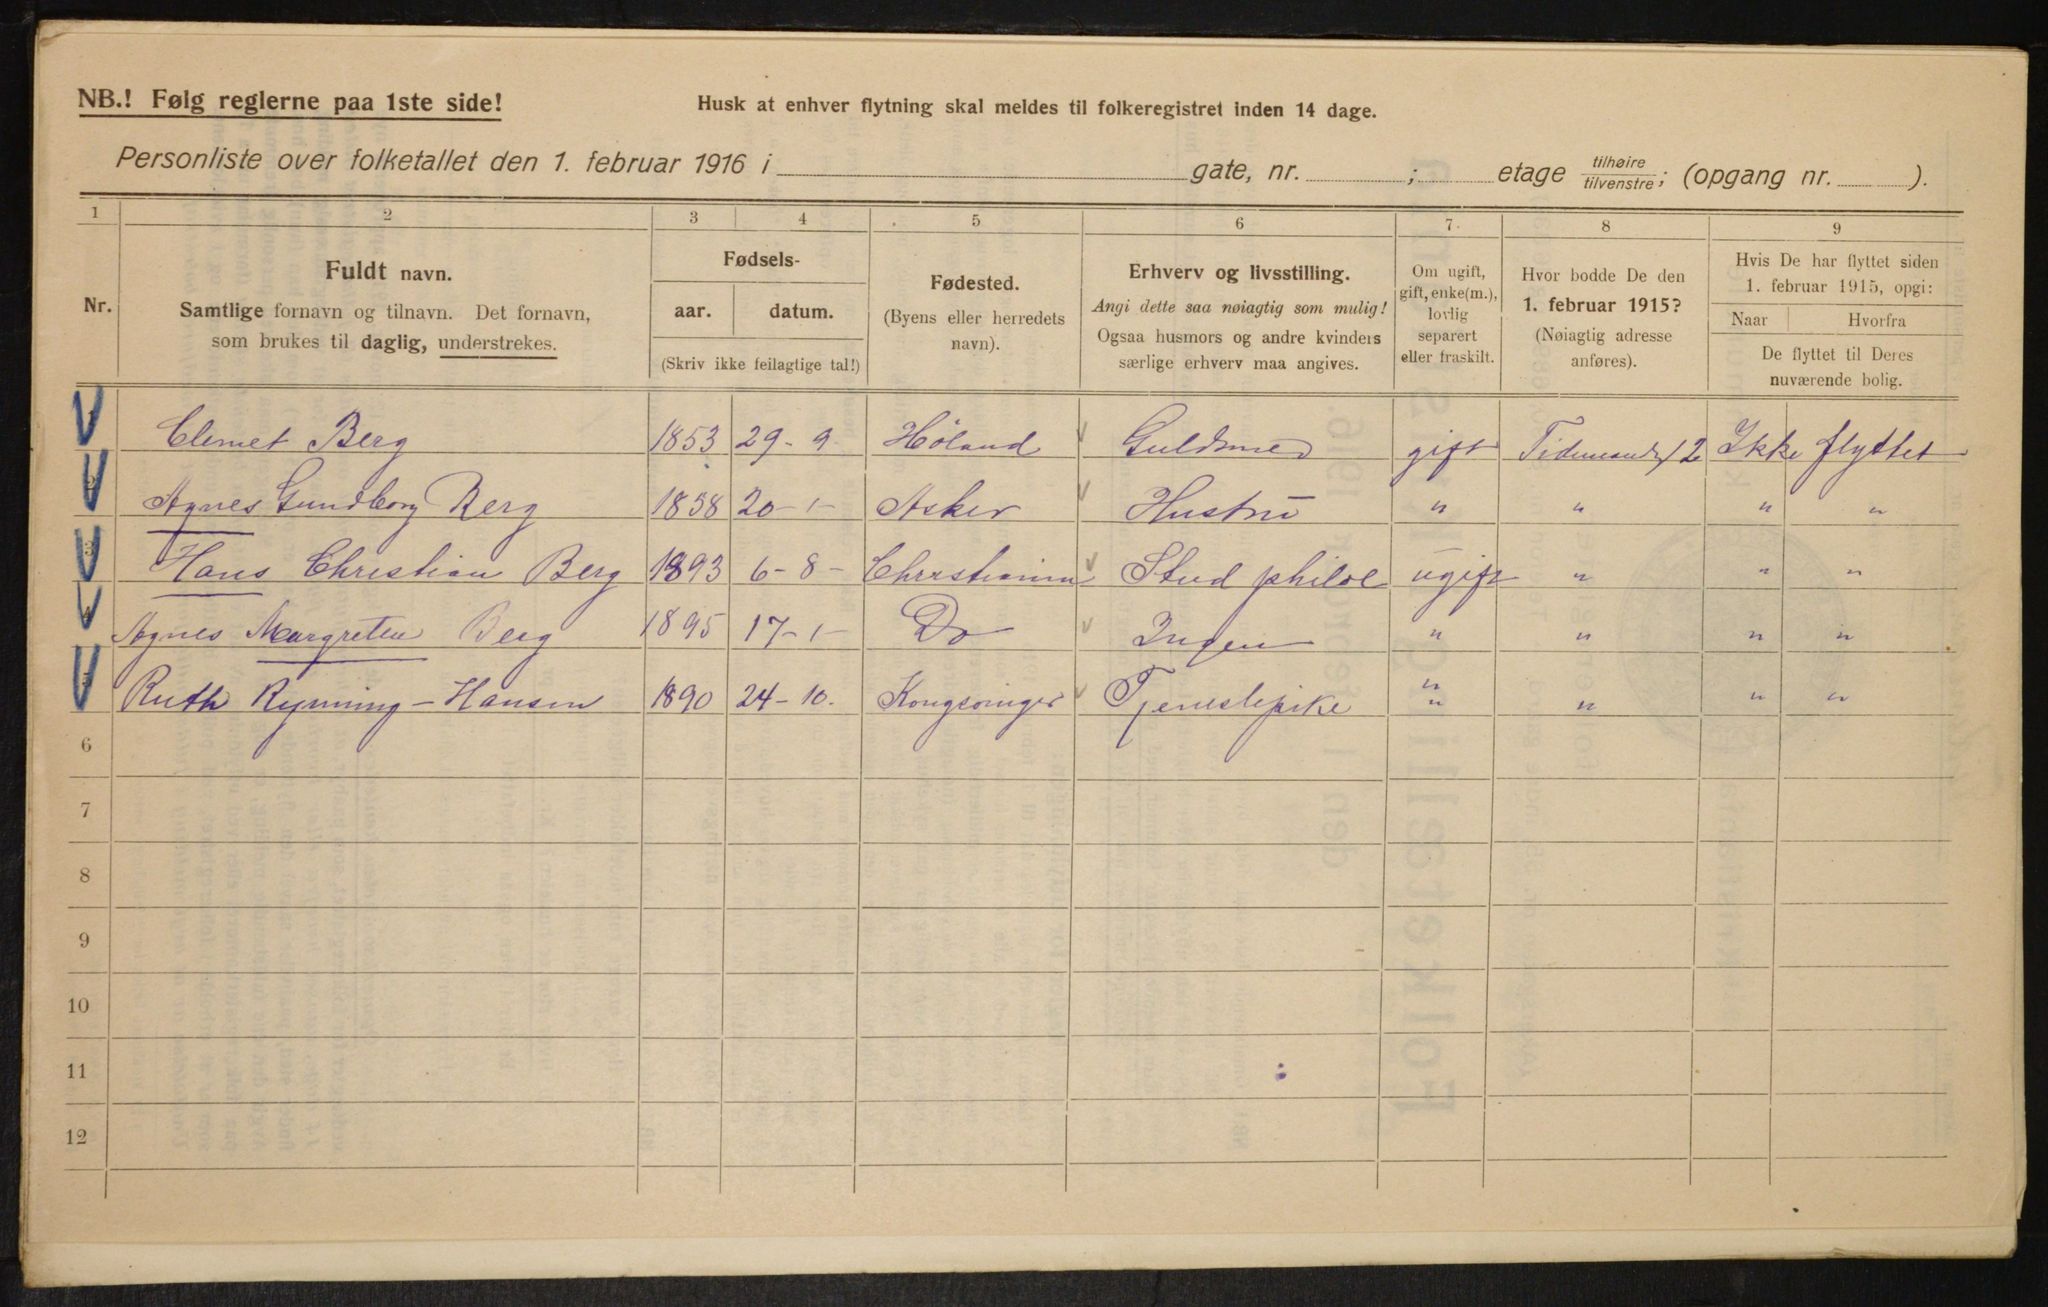 NB.! Følg reglerne paa 1ste side!
Husk at enhver flytning skal meldes til folkeregistret inden 14 dage.
Personliste over folketallet den 1. februar 1916 i gate, nr. ; etage tilhøire/tilvenstre; (opgang nr. ).
1 2 3 4 5 6 7. 8 9
Nr.
Fuldt navn.
Samtlige fornavn og tilnavn. Det fornavn,
som brukes til daglig, understrekes.
Fødsels-
aar. datum.
(Skriv ikke feilagtige tal!)
Fødested.
(Byens eller herredets
navn).
Erhverv og livsstilling.
Angi dette saa nøiagtig som mulig!
Ogsaa husmors og andre kvinders
særlige erhverv maa angives.
Om ugift,
gift, enke(m.),
lovlig
separert
eller fraskilt.
Hvor bodde De den
1. februar 1915?
(Nøiagtig adresse
anføres).
Hvis De har flyttet siden
1. februar 1915, opgi:
Naar Hvorfra
De flyttet til Deres
nuværende bolig.
1 Clemet Berg 1853 29-9 Høland Guldsmed gift 12 Ikke flyttet
2 Agnes Gundborg Berg 1858 20-1- Asker Hustru " " " "
3 Hans Christian Berg 1893 6-8- Christiania Stud philol ugift " " "
4 Agnes Margrethe Berg 1895 17-1- Do Ingen " " " "
5 Ruth Rynning-Hansen 1890 24-10. Kongsvinger Tjenestepike " " " " "
6
7
8
9
10
11
12